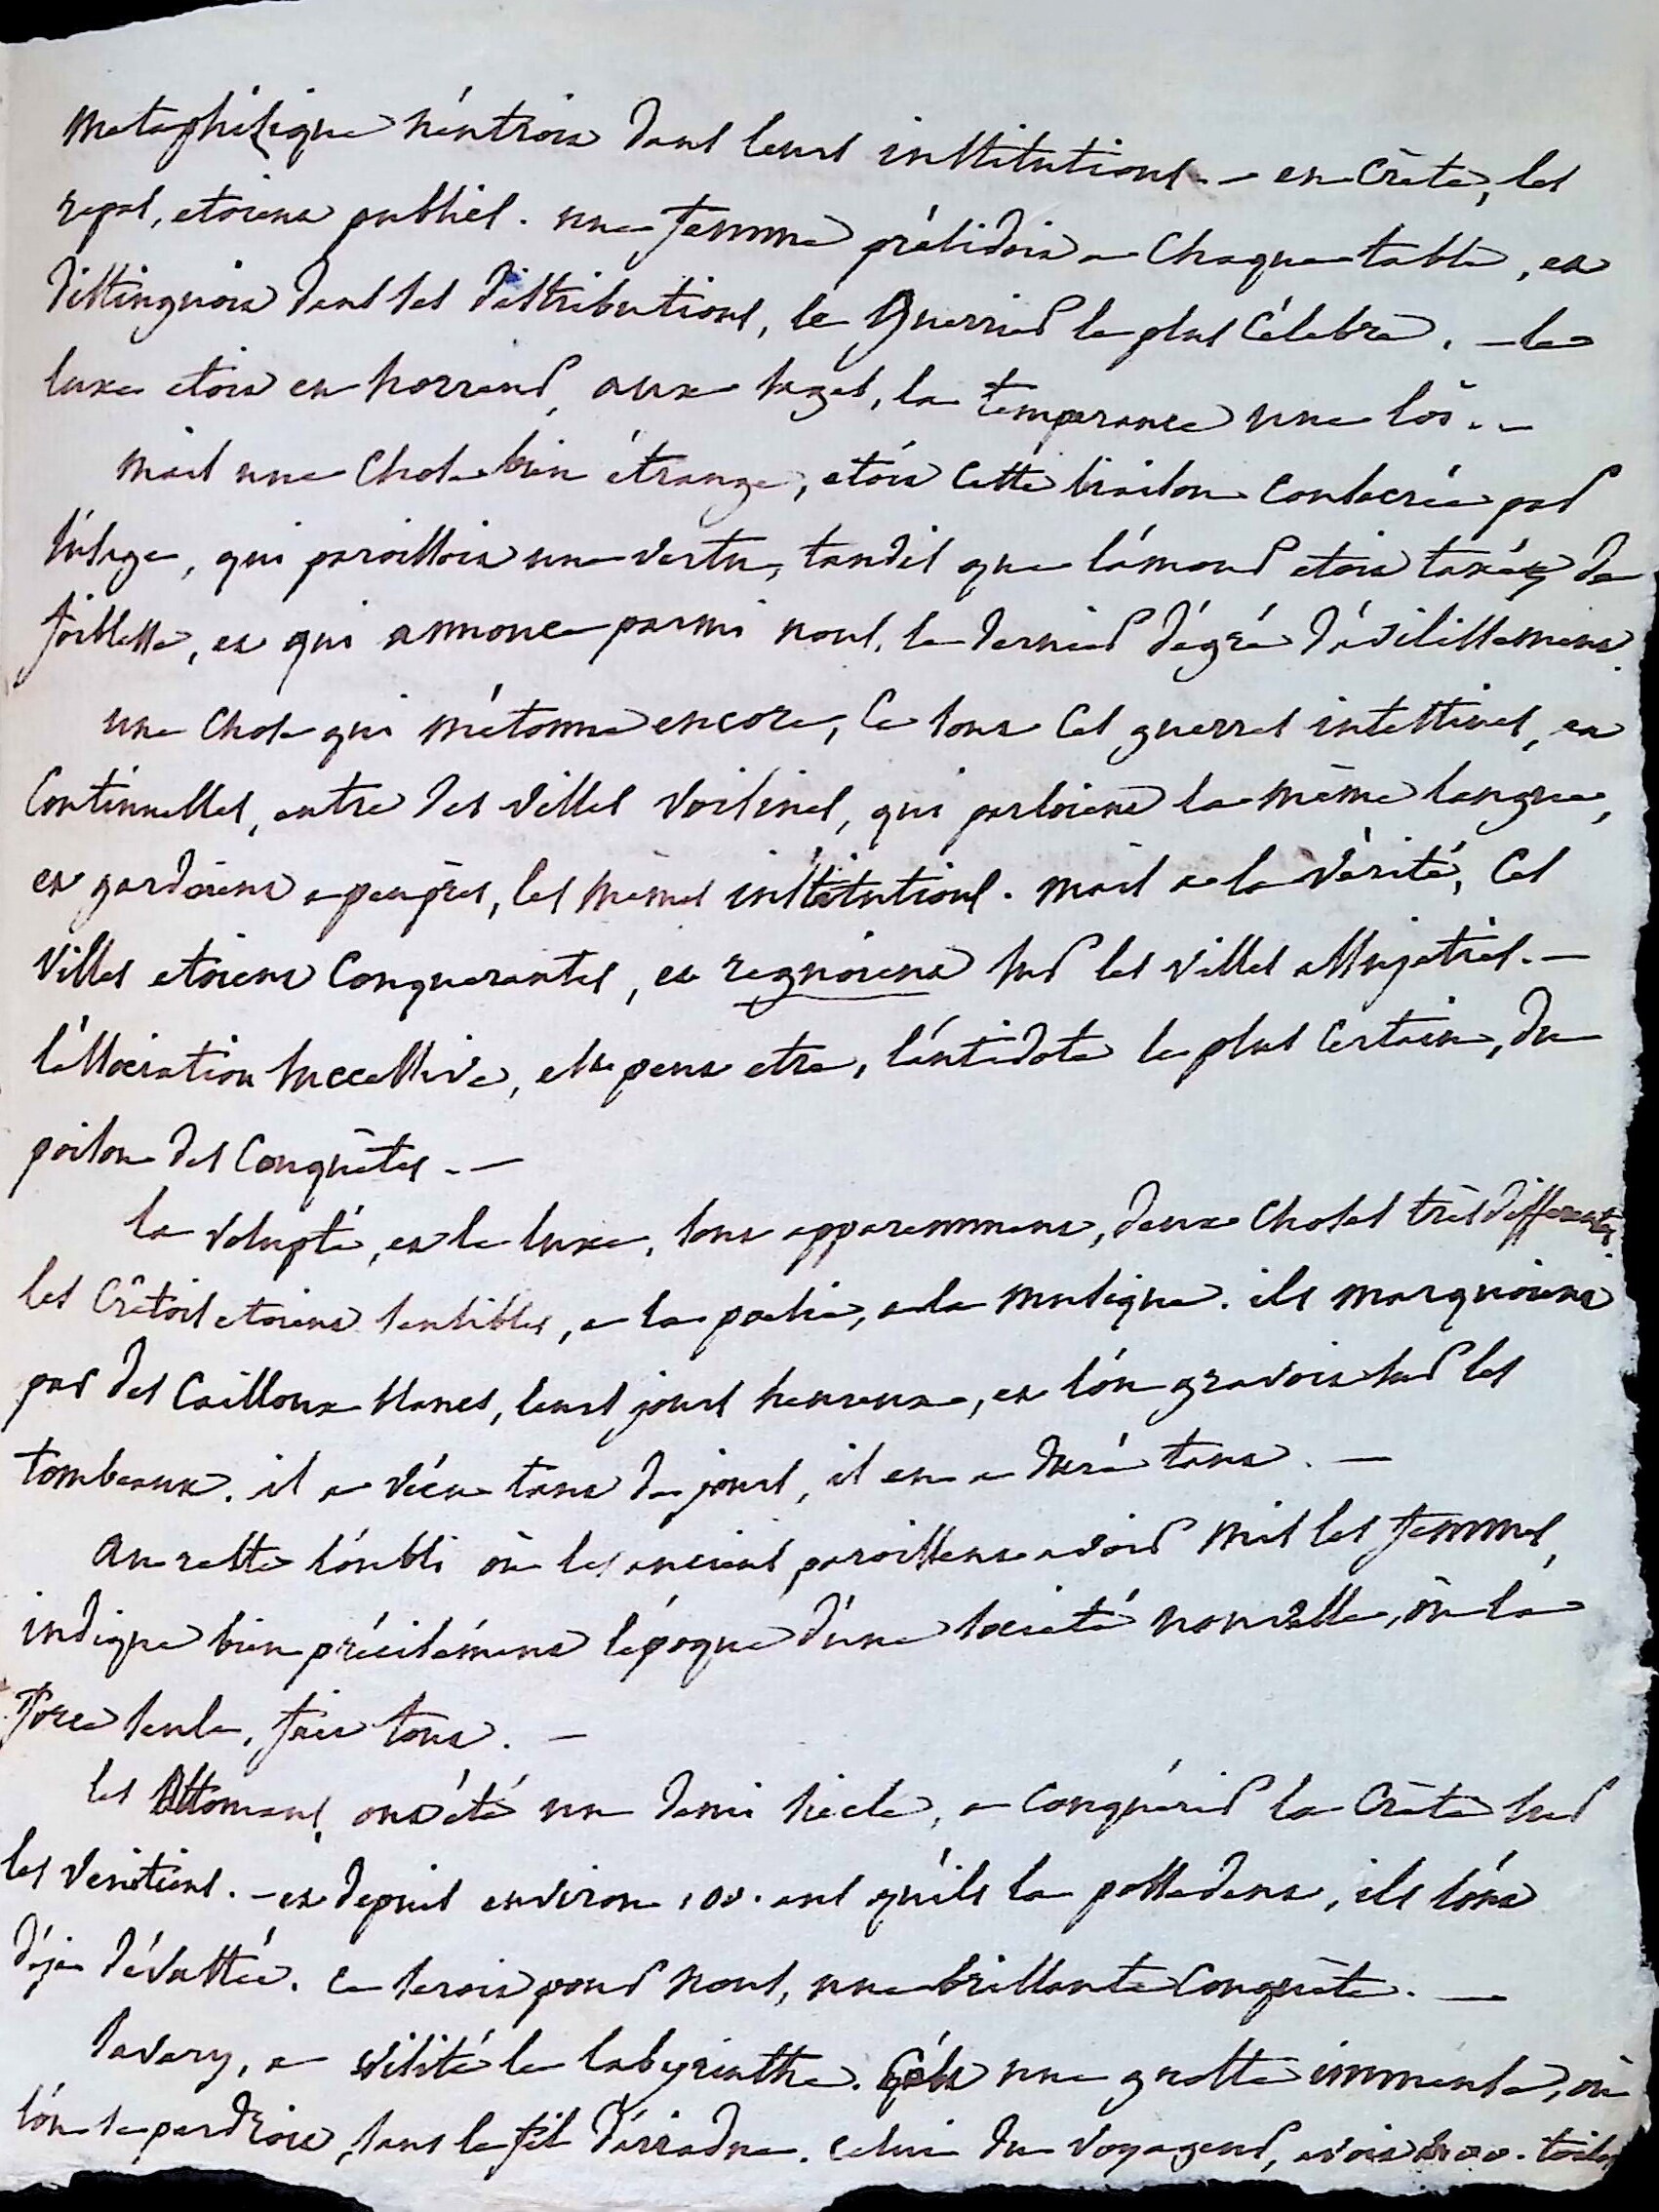 metaphisique n'entroit dans leurs institutions. - en Crète, les
repas, etoient publics. une femme présidoit a chaque table, et
distinguoit dans ses distributions, le guerrier le plus célebre. - le
luxe etoit en horreur, aux sages, la temperance une loi. -
mais une chose bien étrange, etoit cette liaison consacrée par
l'usage, qui paroissoit une vertu, tandis que l'amour etoit taxé de
foiblesse, et qui annonce parmi nous, le dernier dégré d'avilissement.
une chose qui m'étonne encore, ce sont ces guerres intestines, et
continuelles, entre des villes voisines, qui parloient la même langue,
et gardoient a peuprès, les mêmes institutions. mais a la vérité, ces
villes etoient conquerantes, et regnoient sur les villes assujeties. -
l'association successive, est peut etre, l'antidote le plus certain, du
poison des conquêtes. -
la volupté, et le luxe, sont apparemment, deux choses très differentes.
les Crêtois etoient sensibles, a la poesie, a la musique. ils marquoient
par des cailloux blancs, leurs jours heureux, et l'on gravoit sur les
tombeaux. il a vécu tant de jours, il en a duré tant. -
au reste l'oubli où les anciens paroissent avoir mis les femmes,
indique bien précisément l'époque d'une societé nouvelle, où la
force seule, fait tout. -
les Ottomans, ont été un demi siècle, a conquérir la Crète sur
les Venitiens. - et depuis environ 100. ans qu'ils la possedent, ils l'ont
déja dévastée. ce seroit pour nous, une brillante conquête. -
Savary, a visité le labyrinthe. c'est une grotte immense, où
l'on se perdroit, sans le fil d'ariadne. celui du voyageur, avoit 400. toises